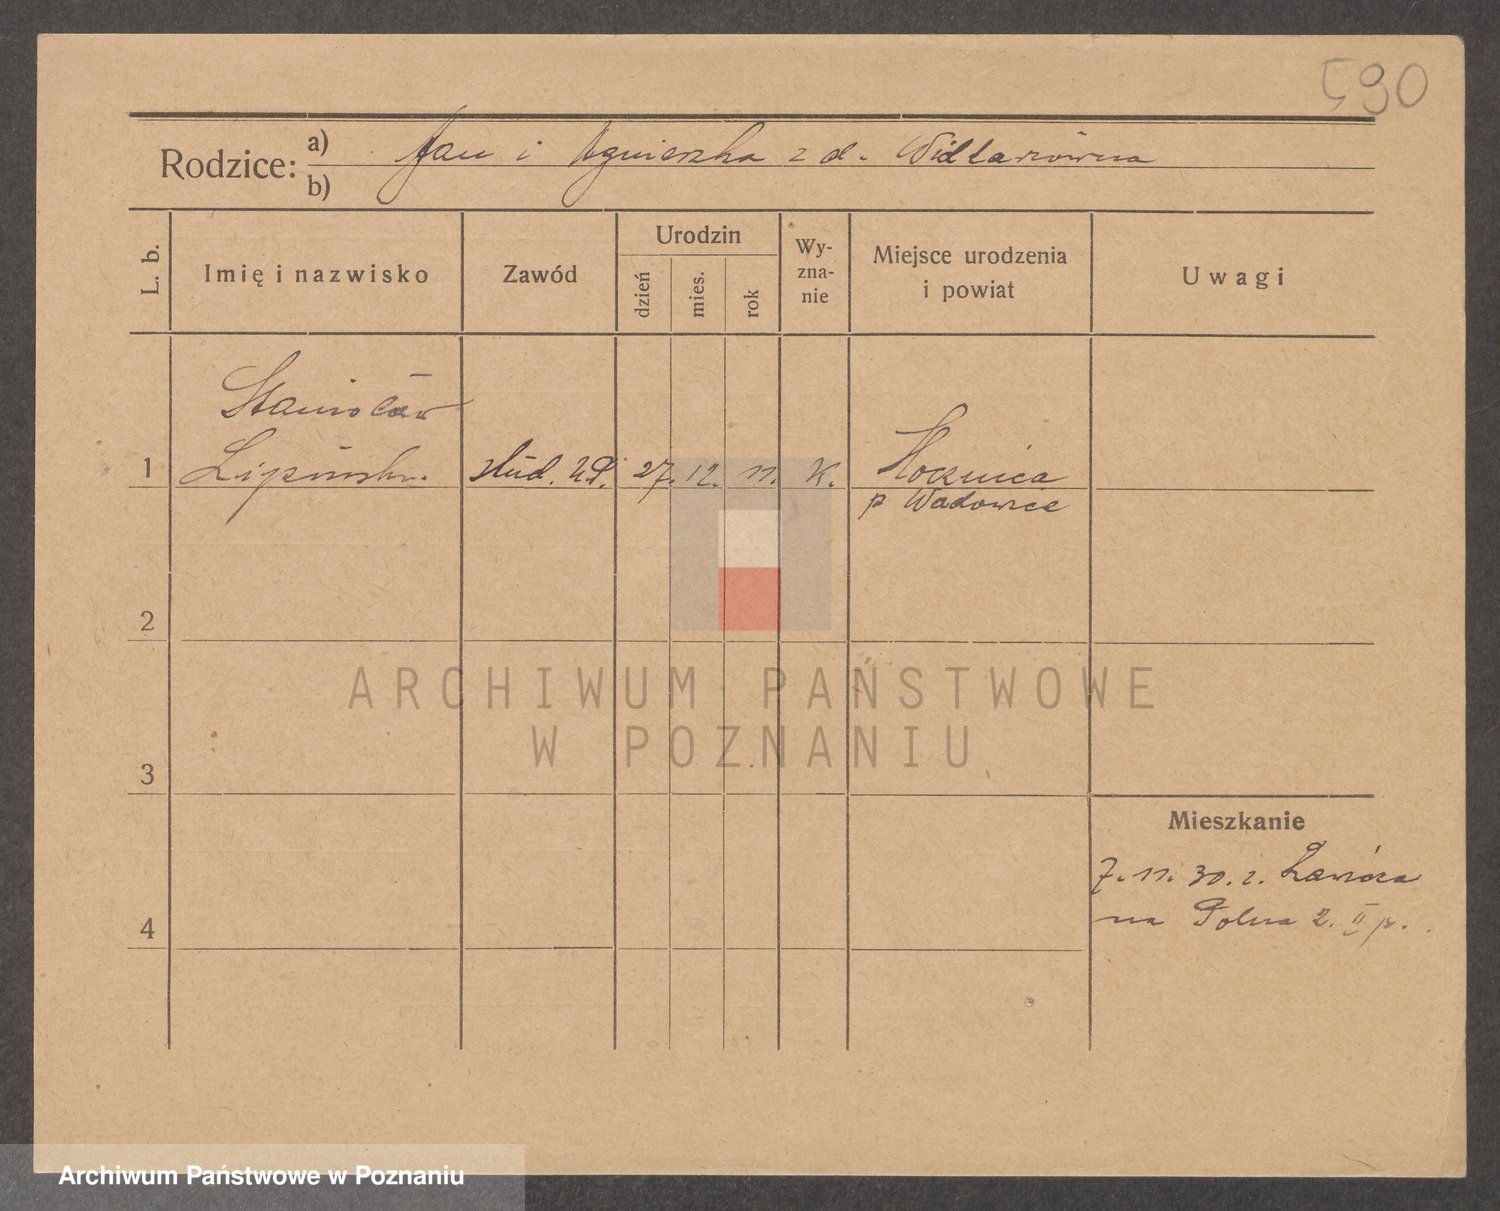 590
Rodzice: a) Jan i Agnieszka z d.
b)
L. b.
Imię i nazwisko
Zawód
Urodzin
dzień
mies.
rok
Wy-
zna-
nie
Miejsce urodzenia
i powiat
Uwagi
Stanisław
1 Lipiński stud. U.P. 27. 12. 11. K. Kocznica
p Wadowice
2
3
4
Mieszkanie
7. 11. 30. z. Ławicza
na Polna 2. II p.
ARCHIWUM PAŃSTWOWE
W POZNANIU
Archiwum Państwowe w Poznaniu